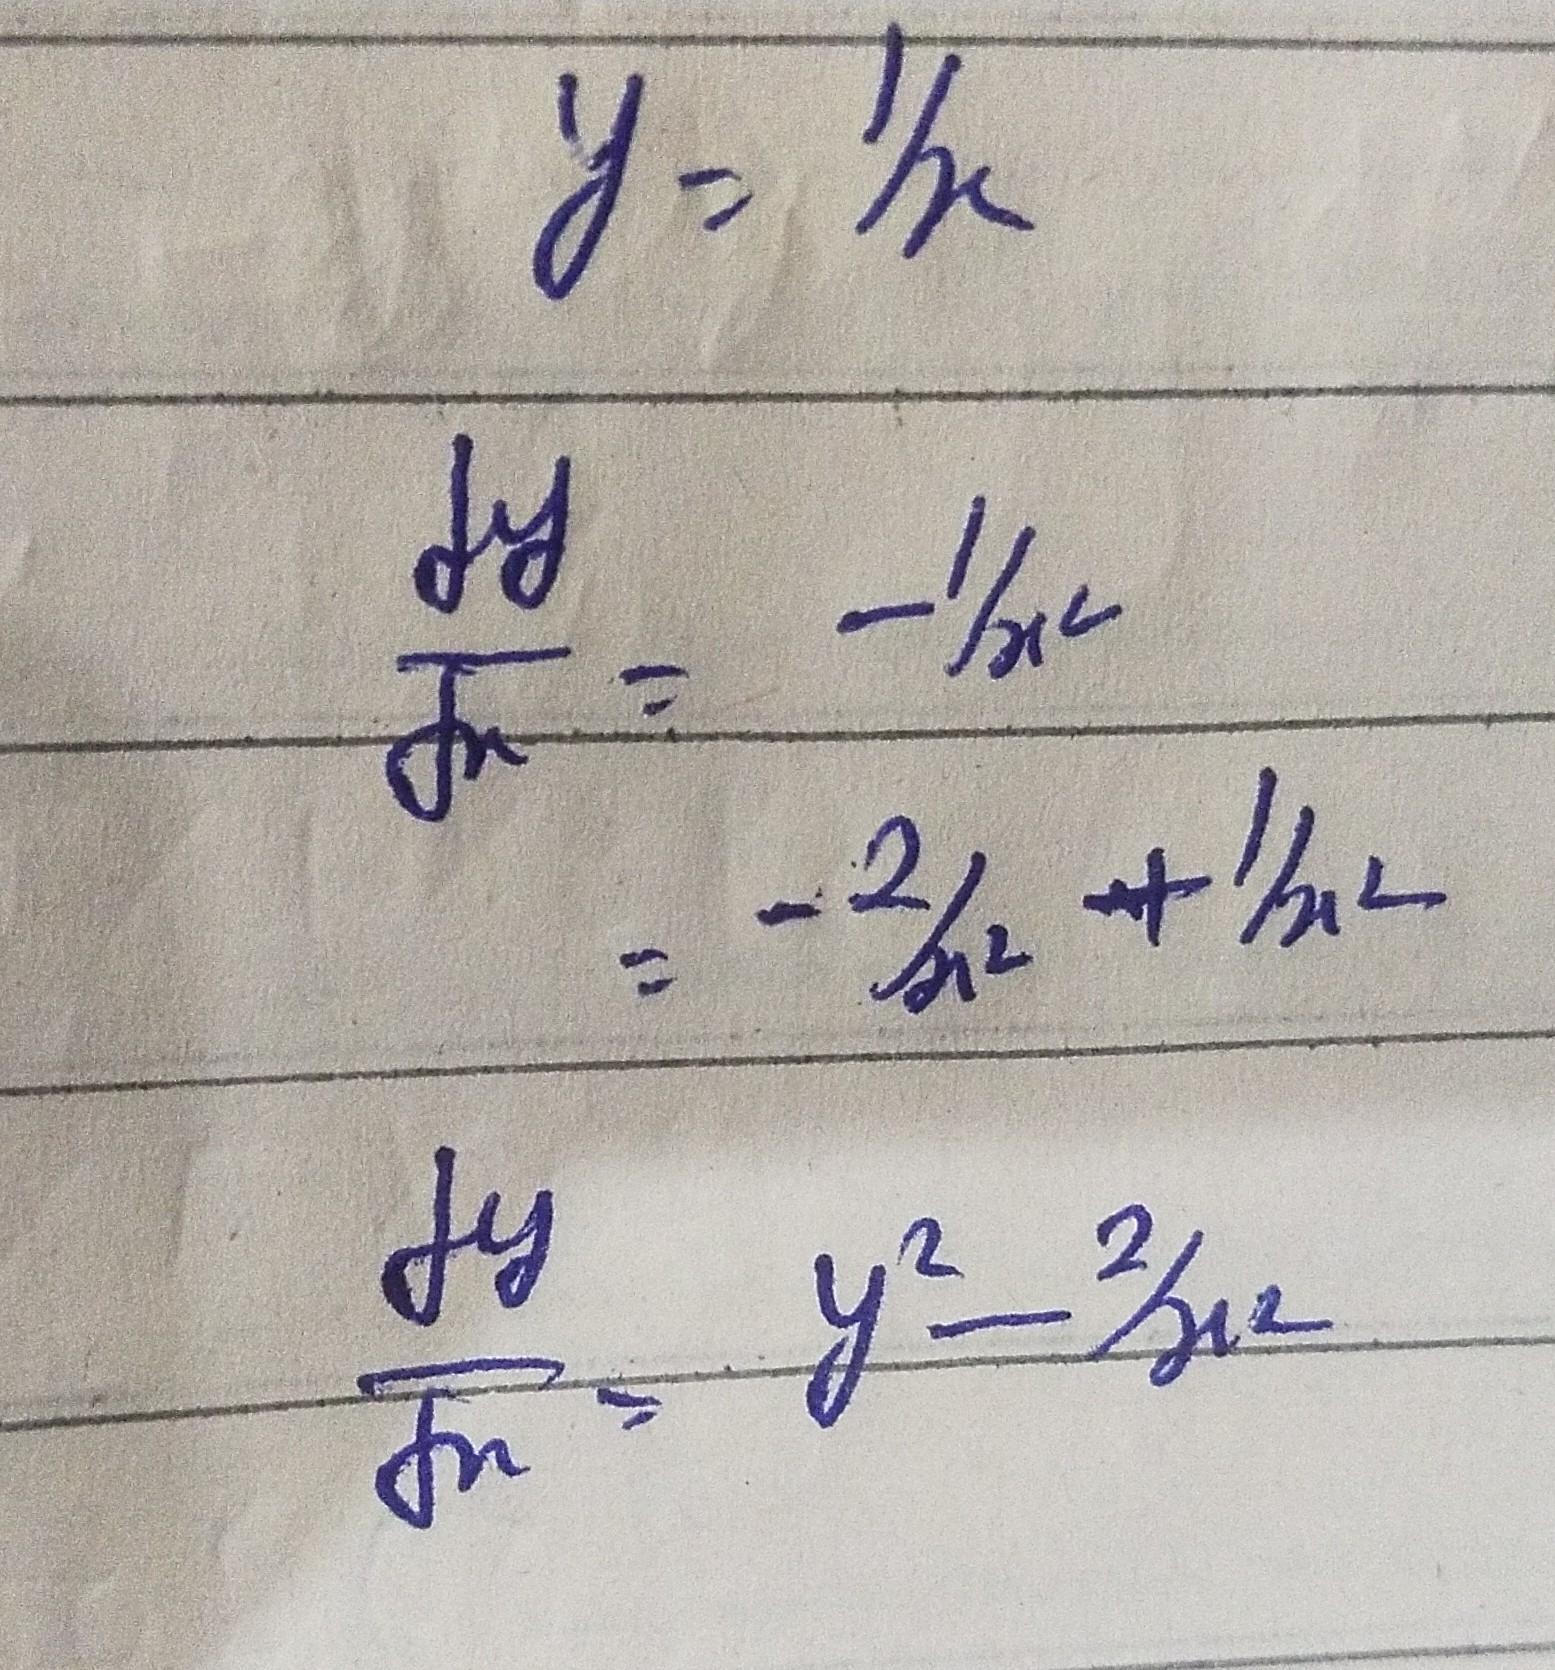 y = 1/x
dy/dx = -1/x²
= -2/x² + 1/x²
dy/dx = y² - 2/x²